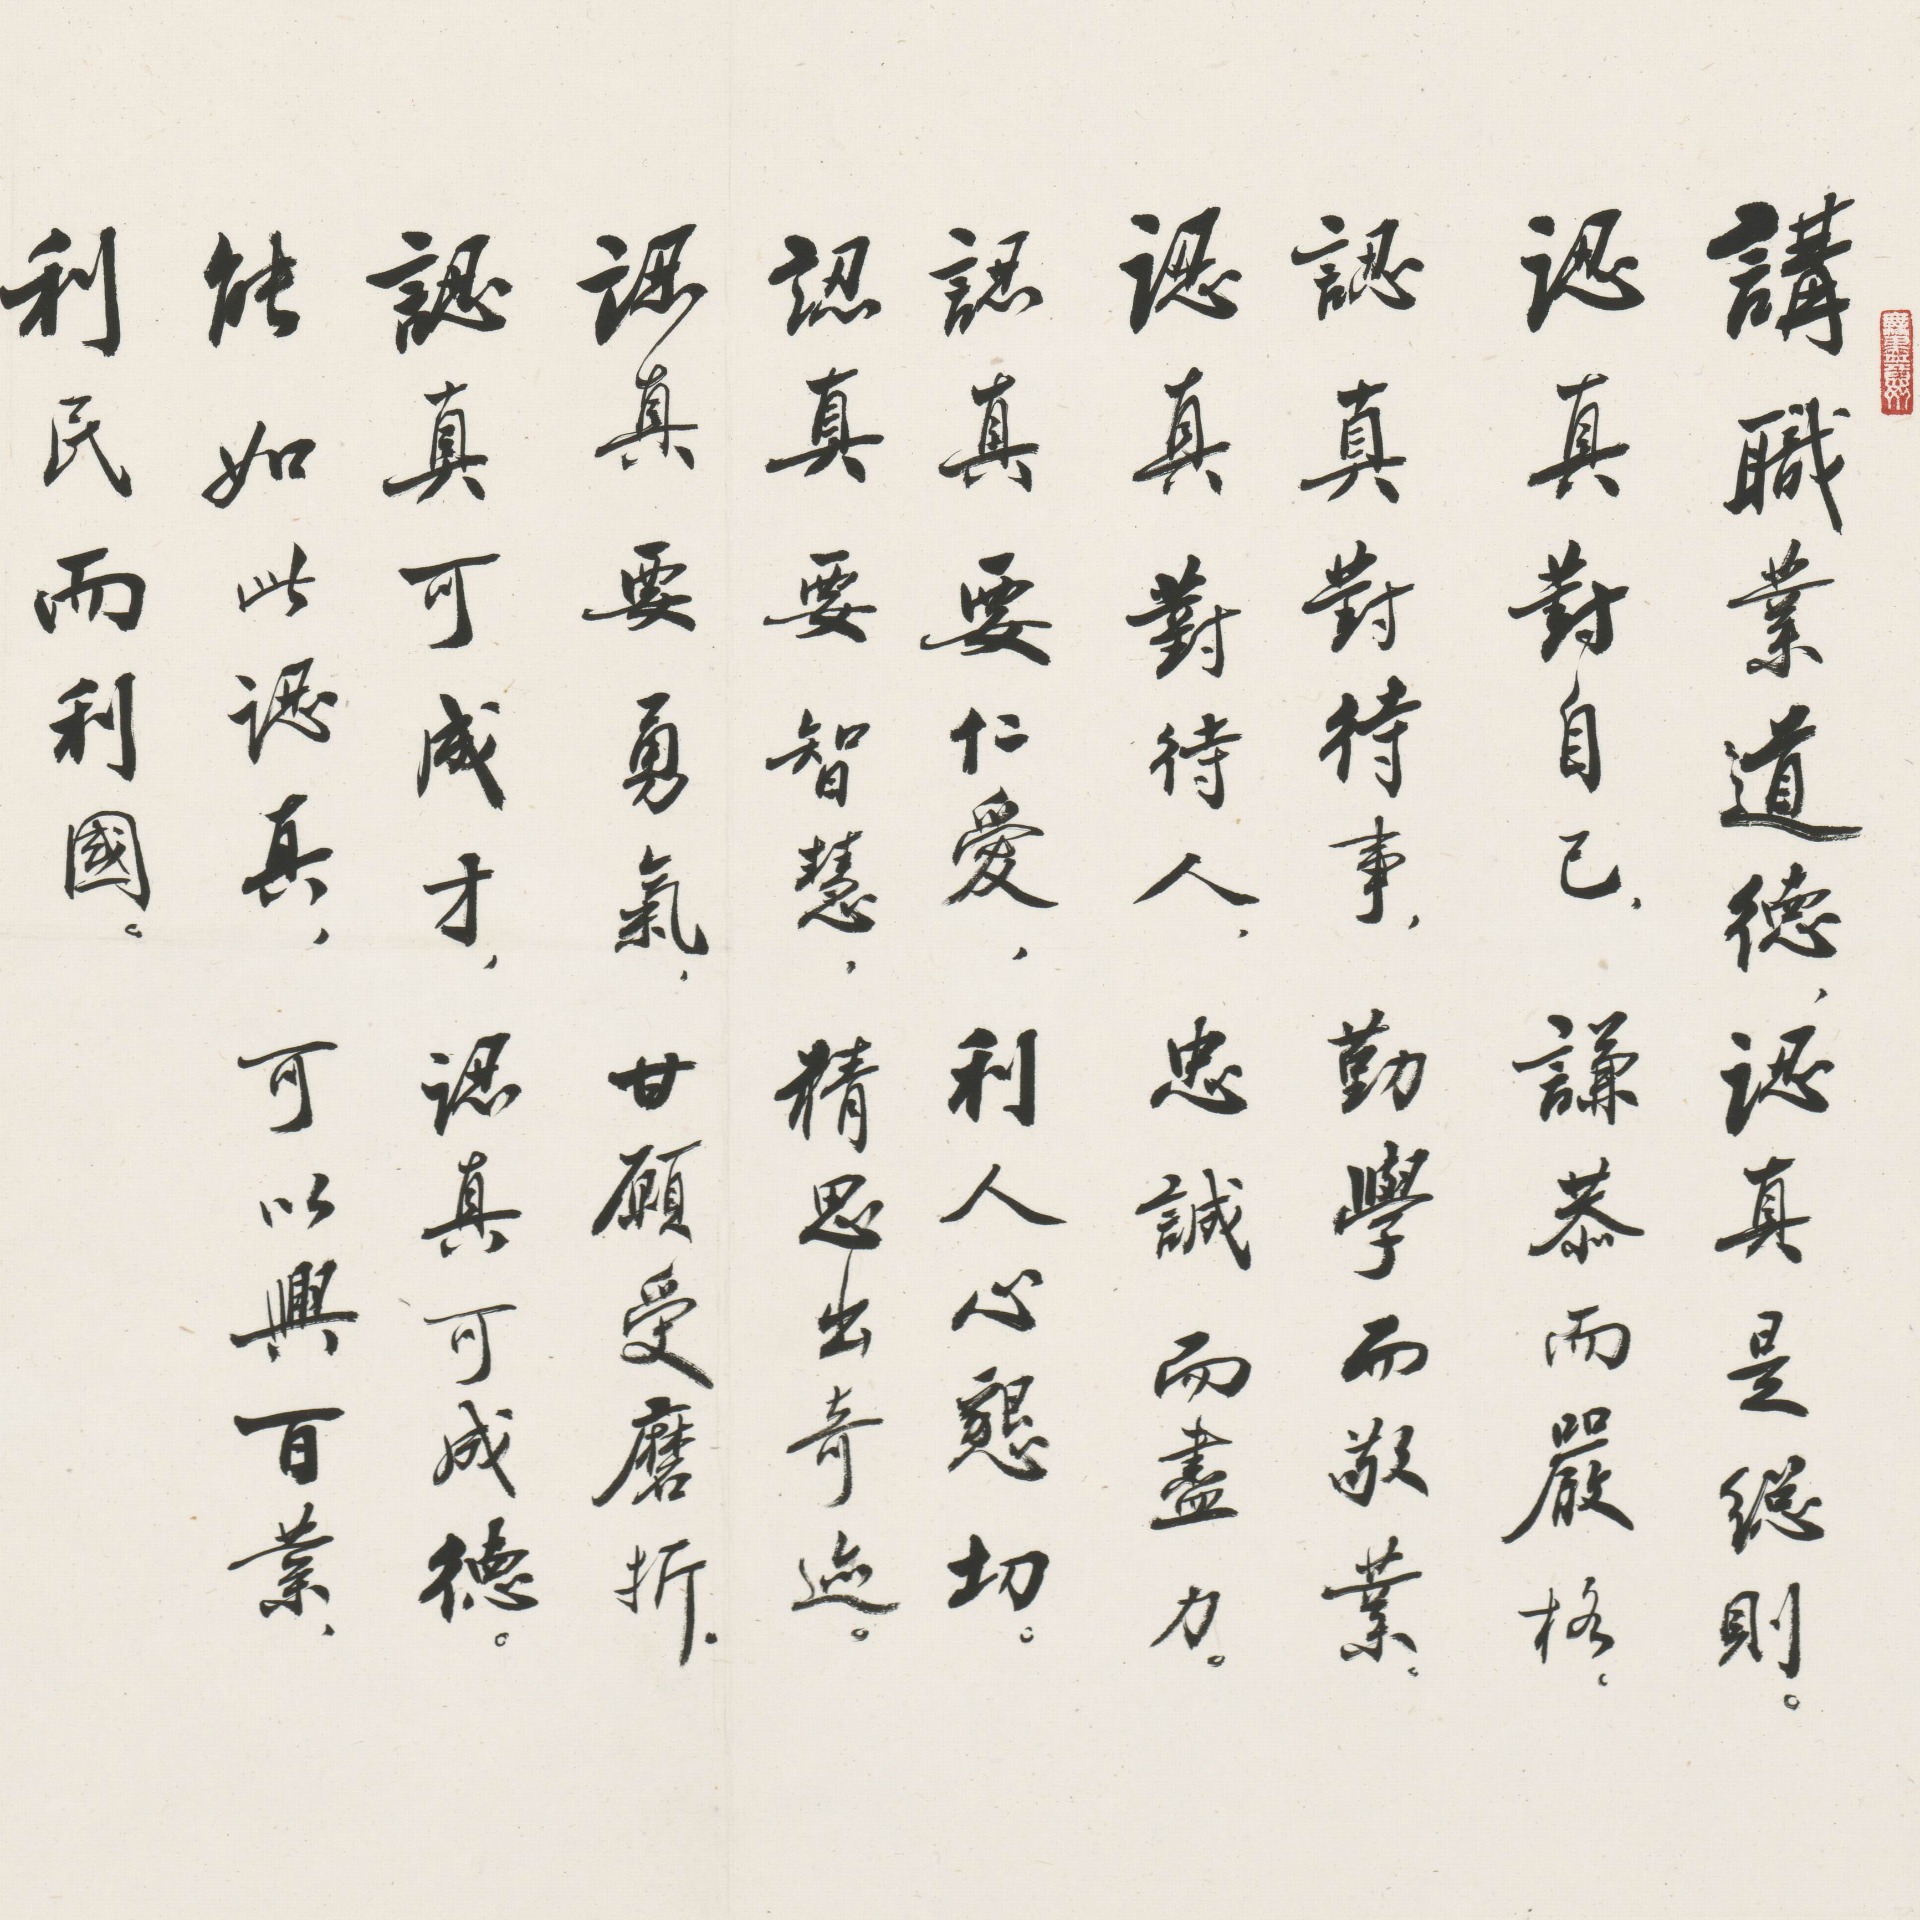 講職業道德，認真是總則。
認真對自己，謙恭而嚴格。
認真對待事，勤學而敬業。
認真對待人，忠誠而盡力。
認真要仁愛，利人心懇切。
認真要智慧，精思出奇迹。
認真要勇氣，甘願受磨折。
認真可成才，認真可成德。
能如此認真，可以興百業，
利民而利國。